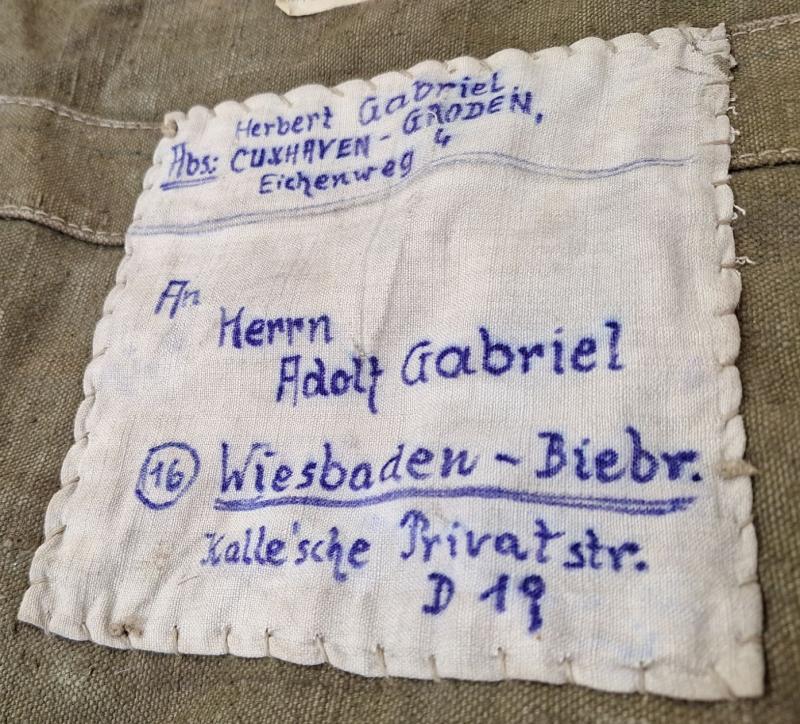 Herbert Gabriel,
Abs: CUXHAVEN - GRODEN,
Eichenweg 4
An
Herrn
Adolf Gabriel
16 Wiesbaden - Biebr.
Kalle'sche Privatstr.
D 19